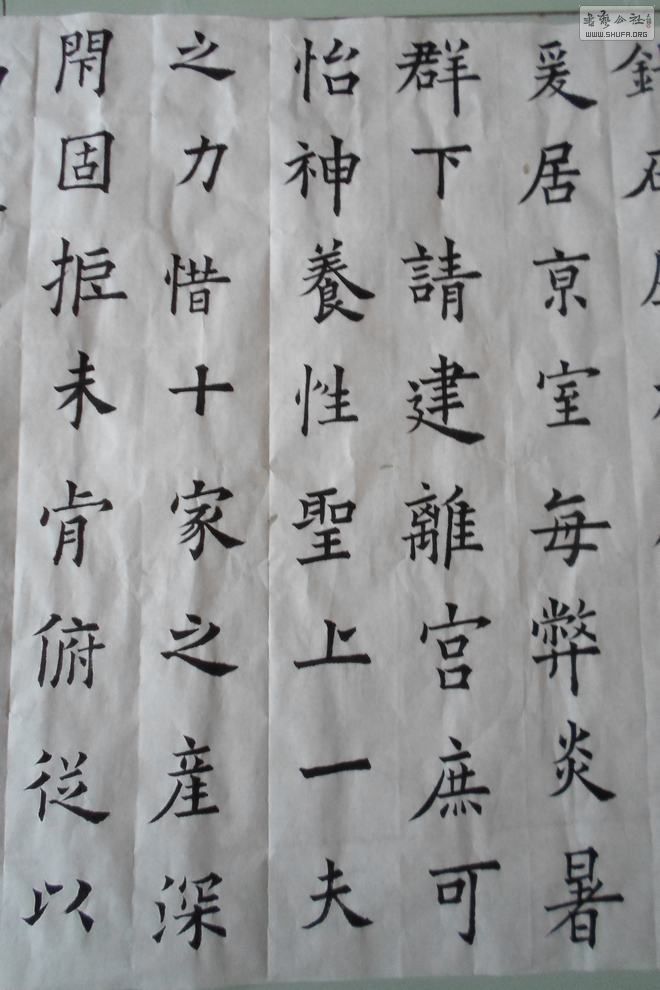 書藝公社
WWW.SHUFA.ORG
爰居亰室每弊炎暑
群下請建離宫庶可
怡神養性聖上一夫
之力惜十家之産深
閇固拒未肯俯従以